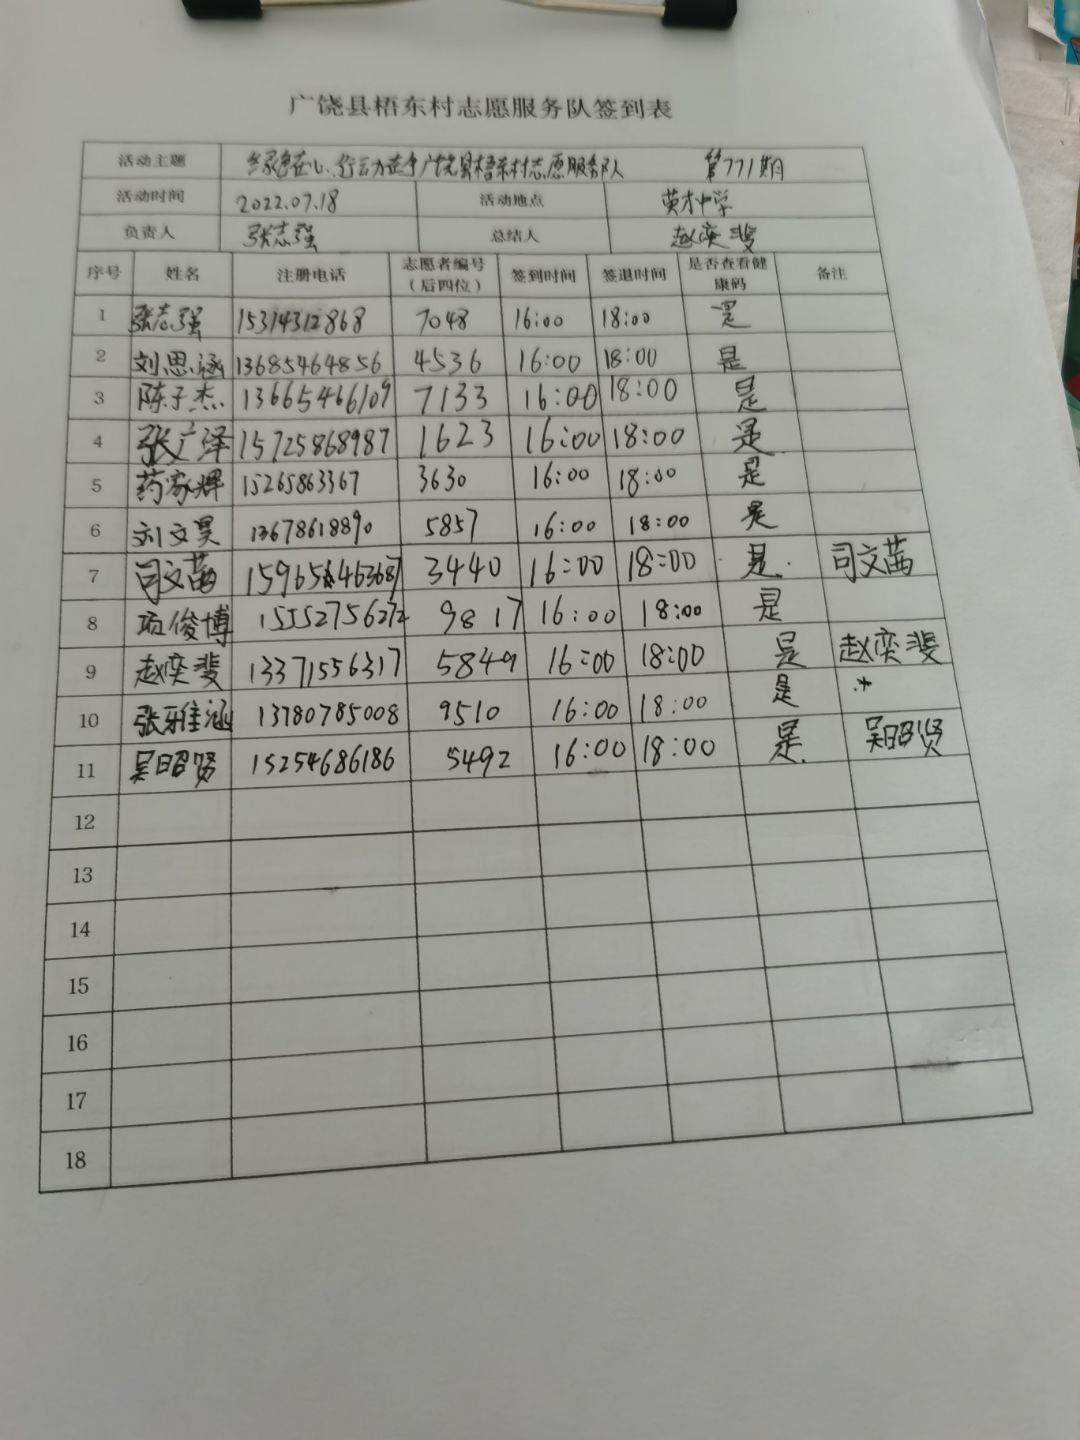 广饶县梧东村志愿服务队签到表
活动主题 绿色在心、行动在手广饶县梧东村志愿服务队 第771期
活动时间 2022.07.18 活动地点 英才中学
负责人 张志强 总结人 赵奕斐
序号 姓名 注册电话 志愿者编号（后四位） 签到时间 签退时间 是否查看健康码 备注
1 张志强 15314312868 7048 16:00 18:00 是
2 刘思涵 13685464856 4536 16:00 18:00 是
3 陈子杰 13665466109 7133 16:00 18:00 是
4 张广泽 15725868987 1623 16:00 18:00 是
5 药家辉 15265863367 3630 16:00 18:00 是
6 刘文昊 13678618890 5857 16:00 18:00 是
7 司文茜 3440 16:00 18:00 是. 司文茜
8 项俊博 15552756272 9817 16:00 18:00 是
9 赵奕斐 13371556317 5849 16:00 18:00 是 赵奕斐
10 张雅涵 13780785008 9510 16:00 18:00 是
11 吴昭贤 15254686186 5492 16:00 18:00 是. 吴昭贤
12
13
14
15
16
17
18